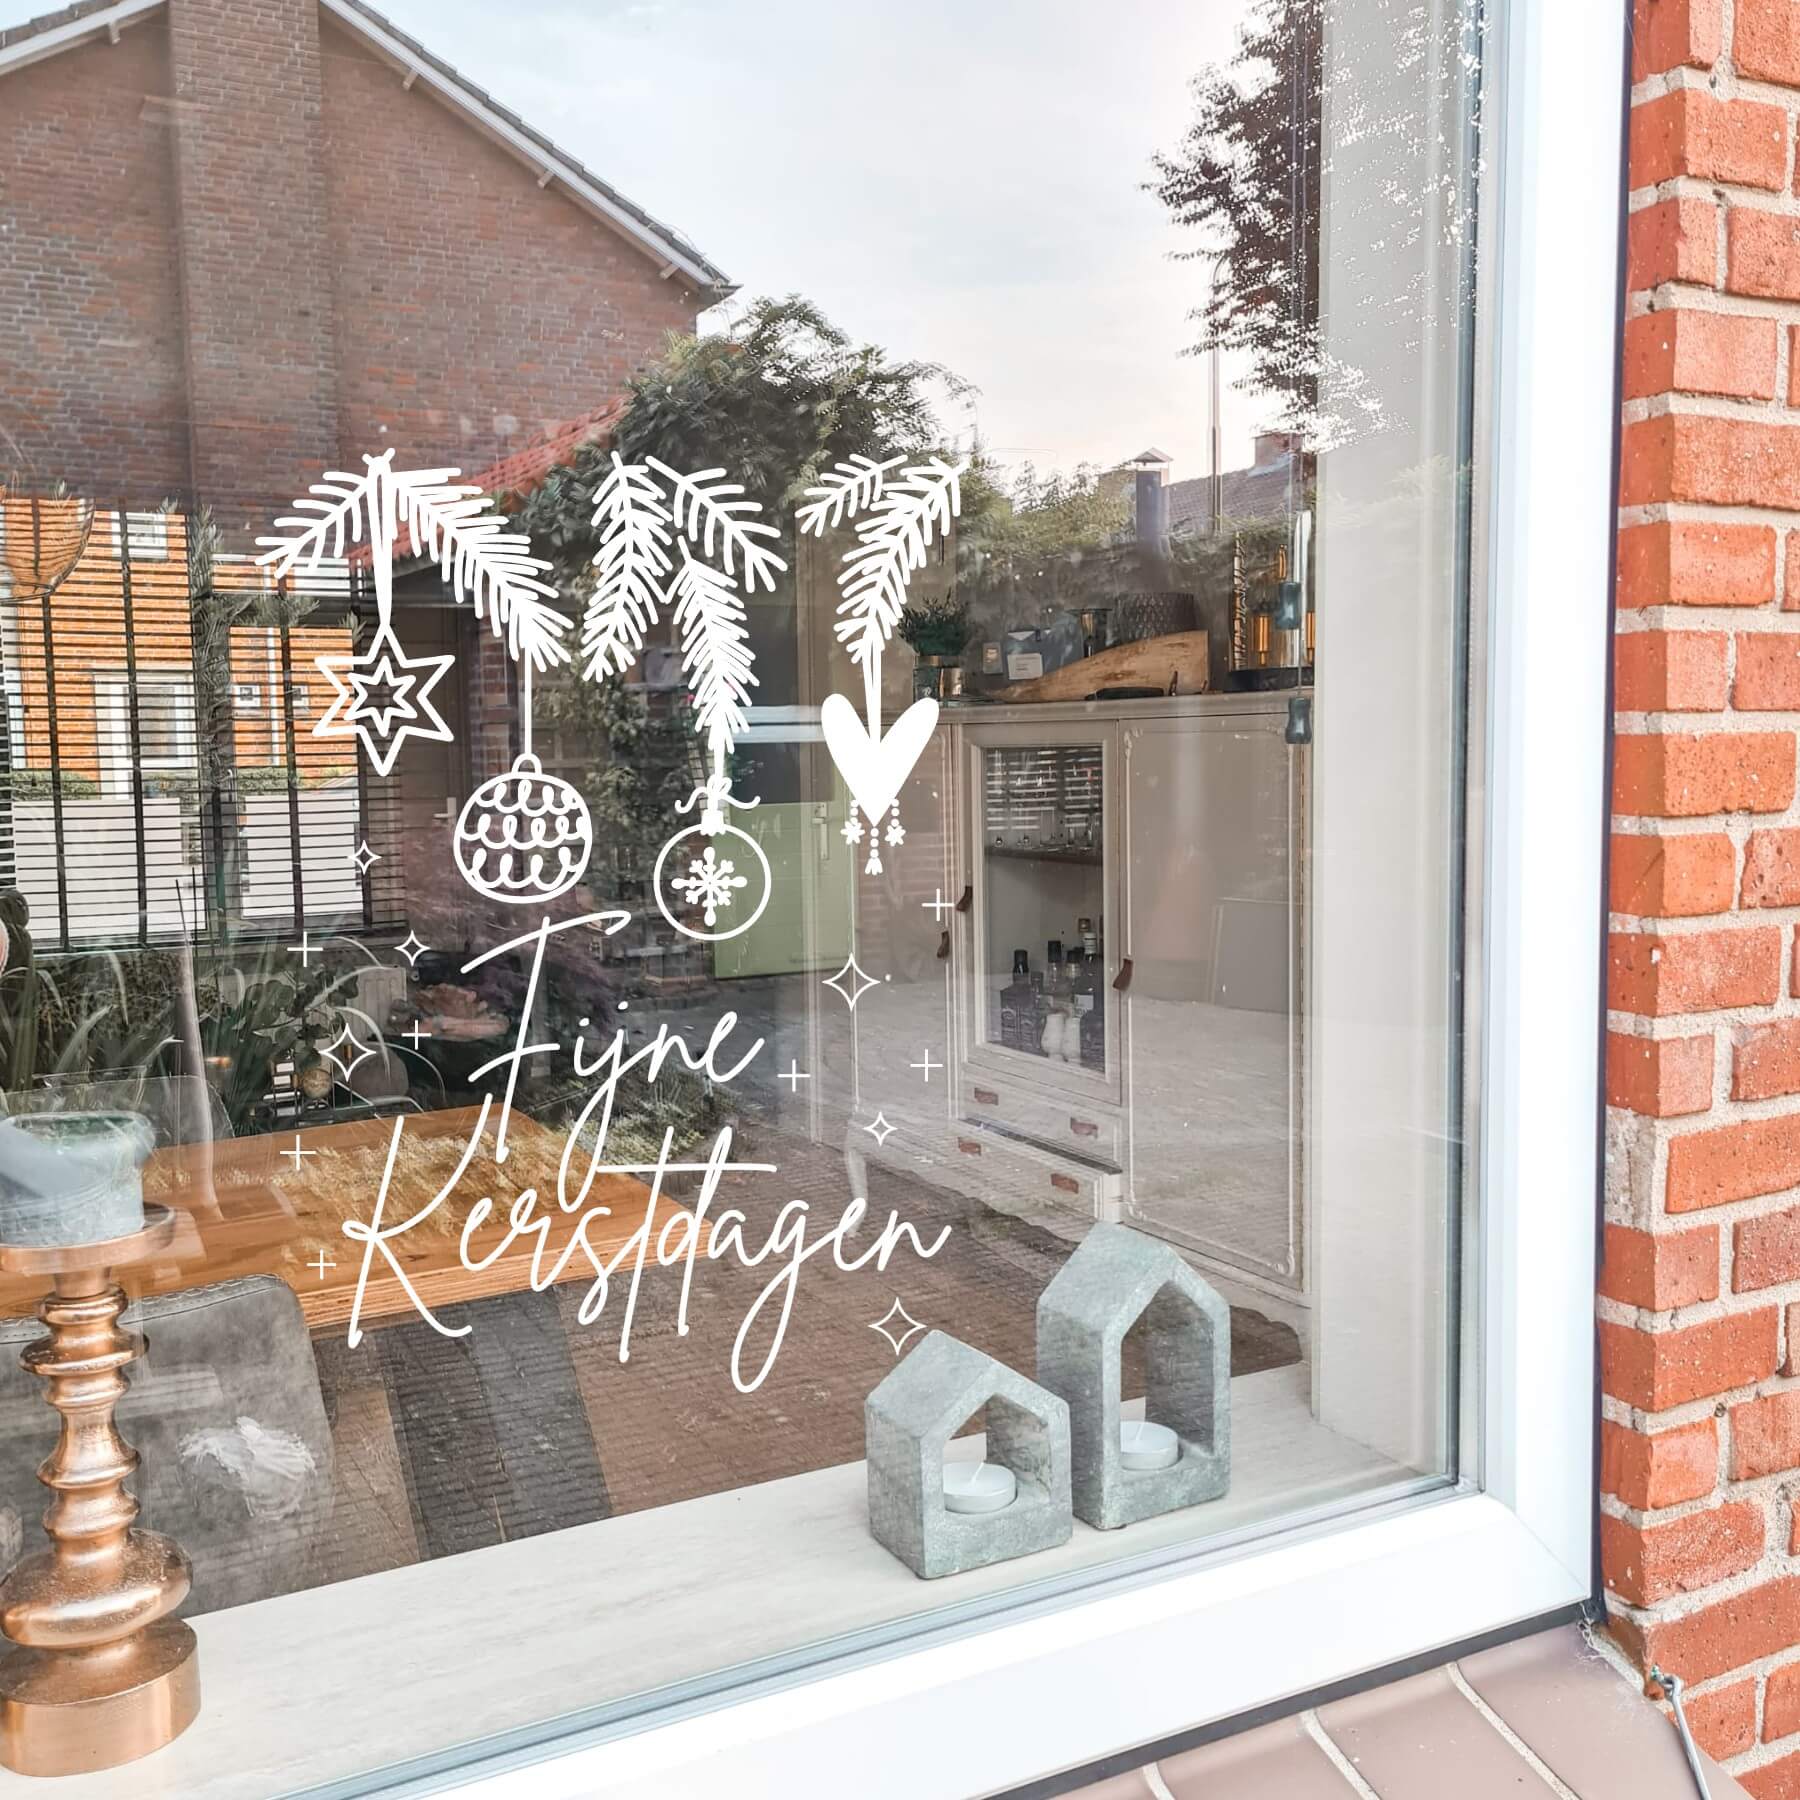 Fijne
Kerstdagen